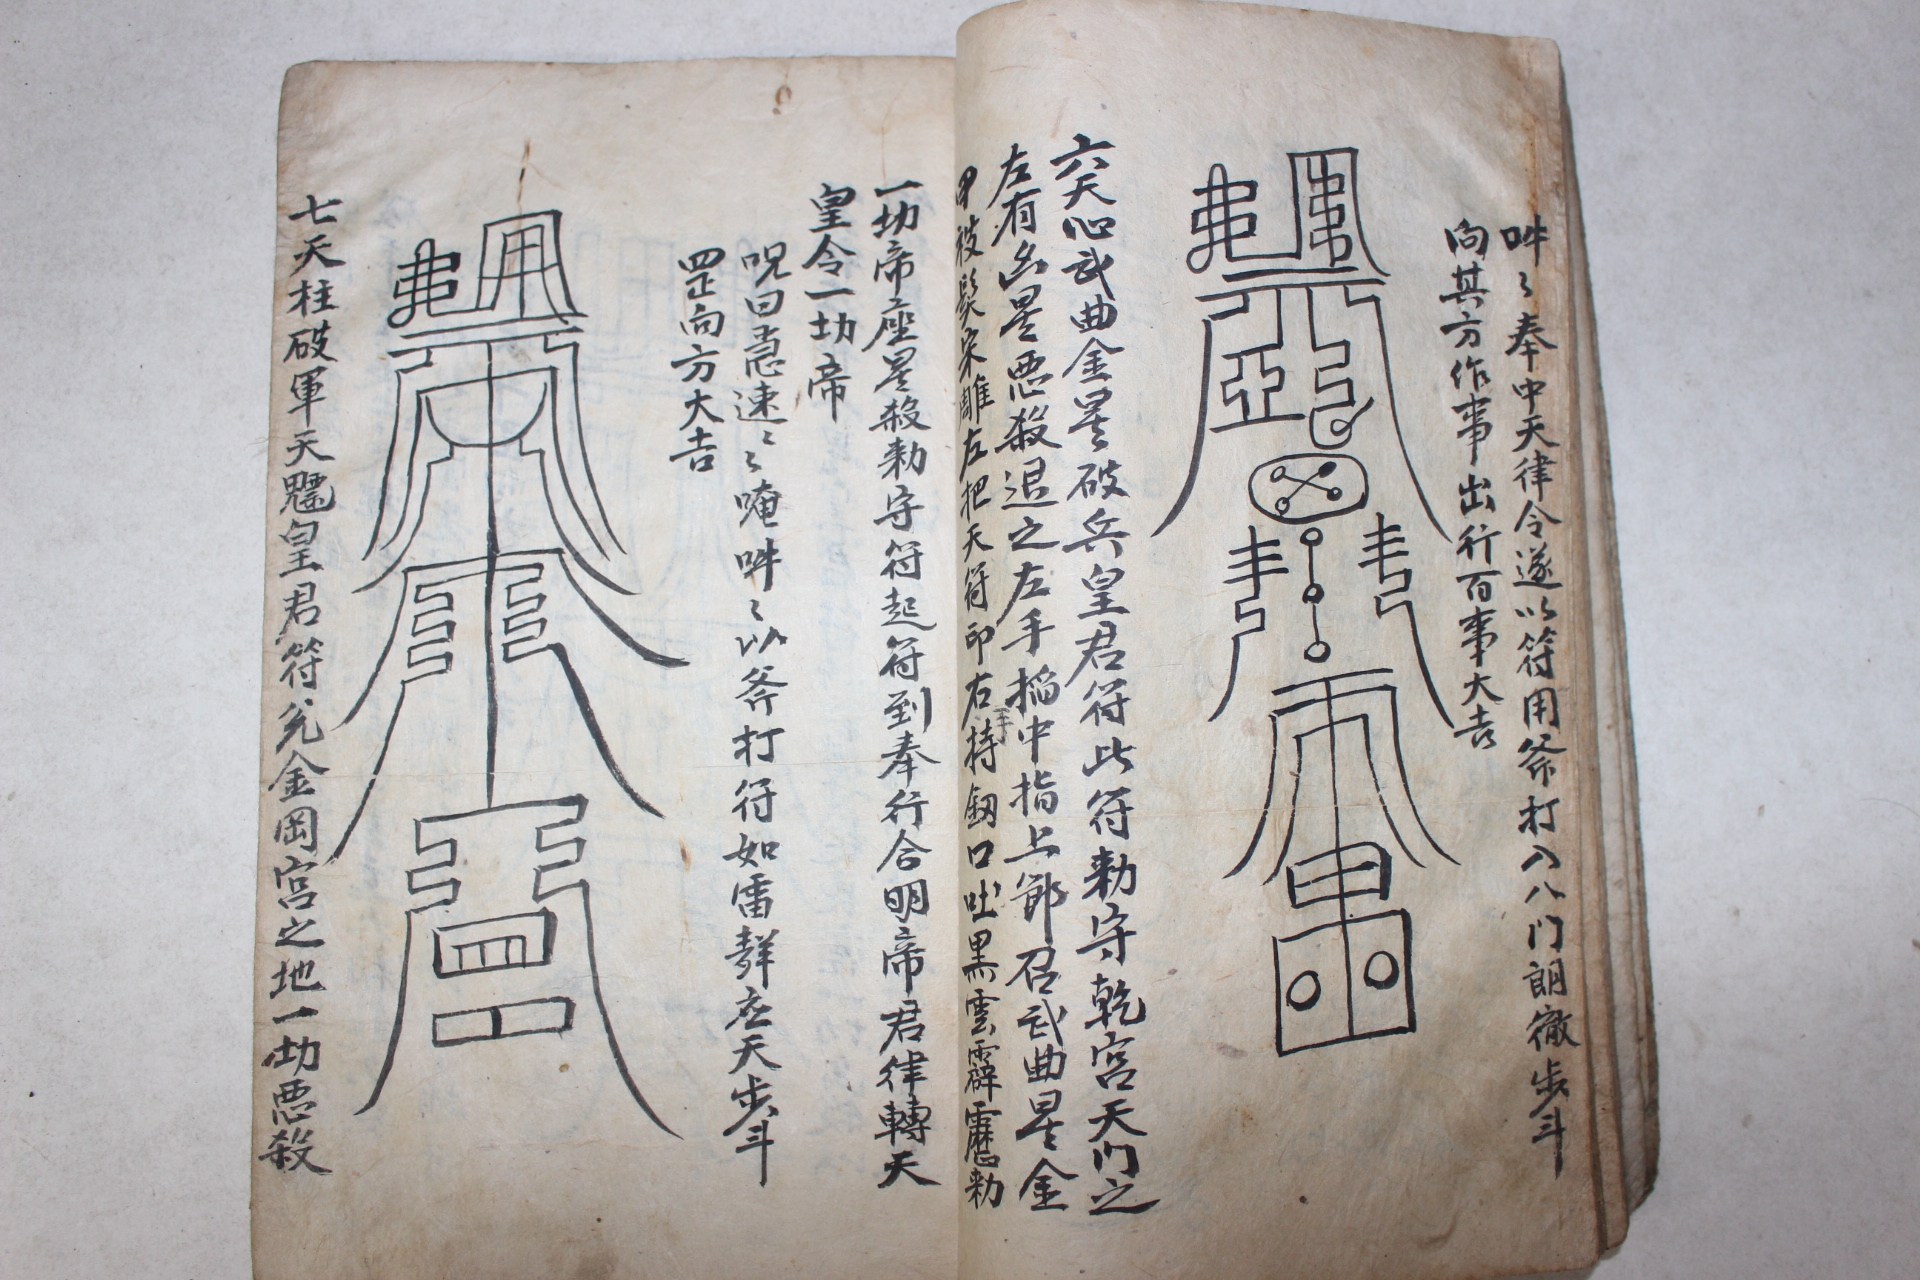 吽〻奉中天律令遂以符用斧打入八门朗徹步斗
向其方作事出行百事大吉
六天心武曲金星破兵皇君符此符勅守乾宮天门之
左有凶星悪殺退之左手掐中指上節召武曲星金
甲被髮宋雕左把天符印右手持劔口吐黒雲霹靂勅
一切帝座星殺勅守符起符到奉行合明帝君律轉天
皇令一切帝
呪曰急速〻唵吽〻以斧打符如雷聲在天步斗
罡向方大吉
七天柱破軍天魁皇君符兊金岡宮之地一切悪殺